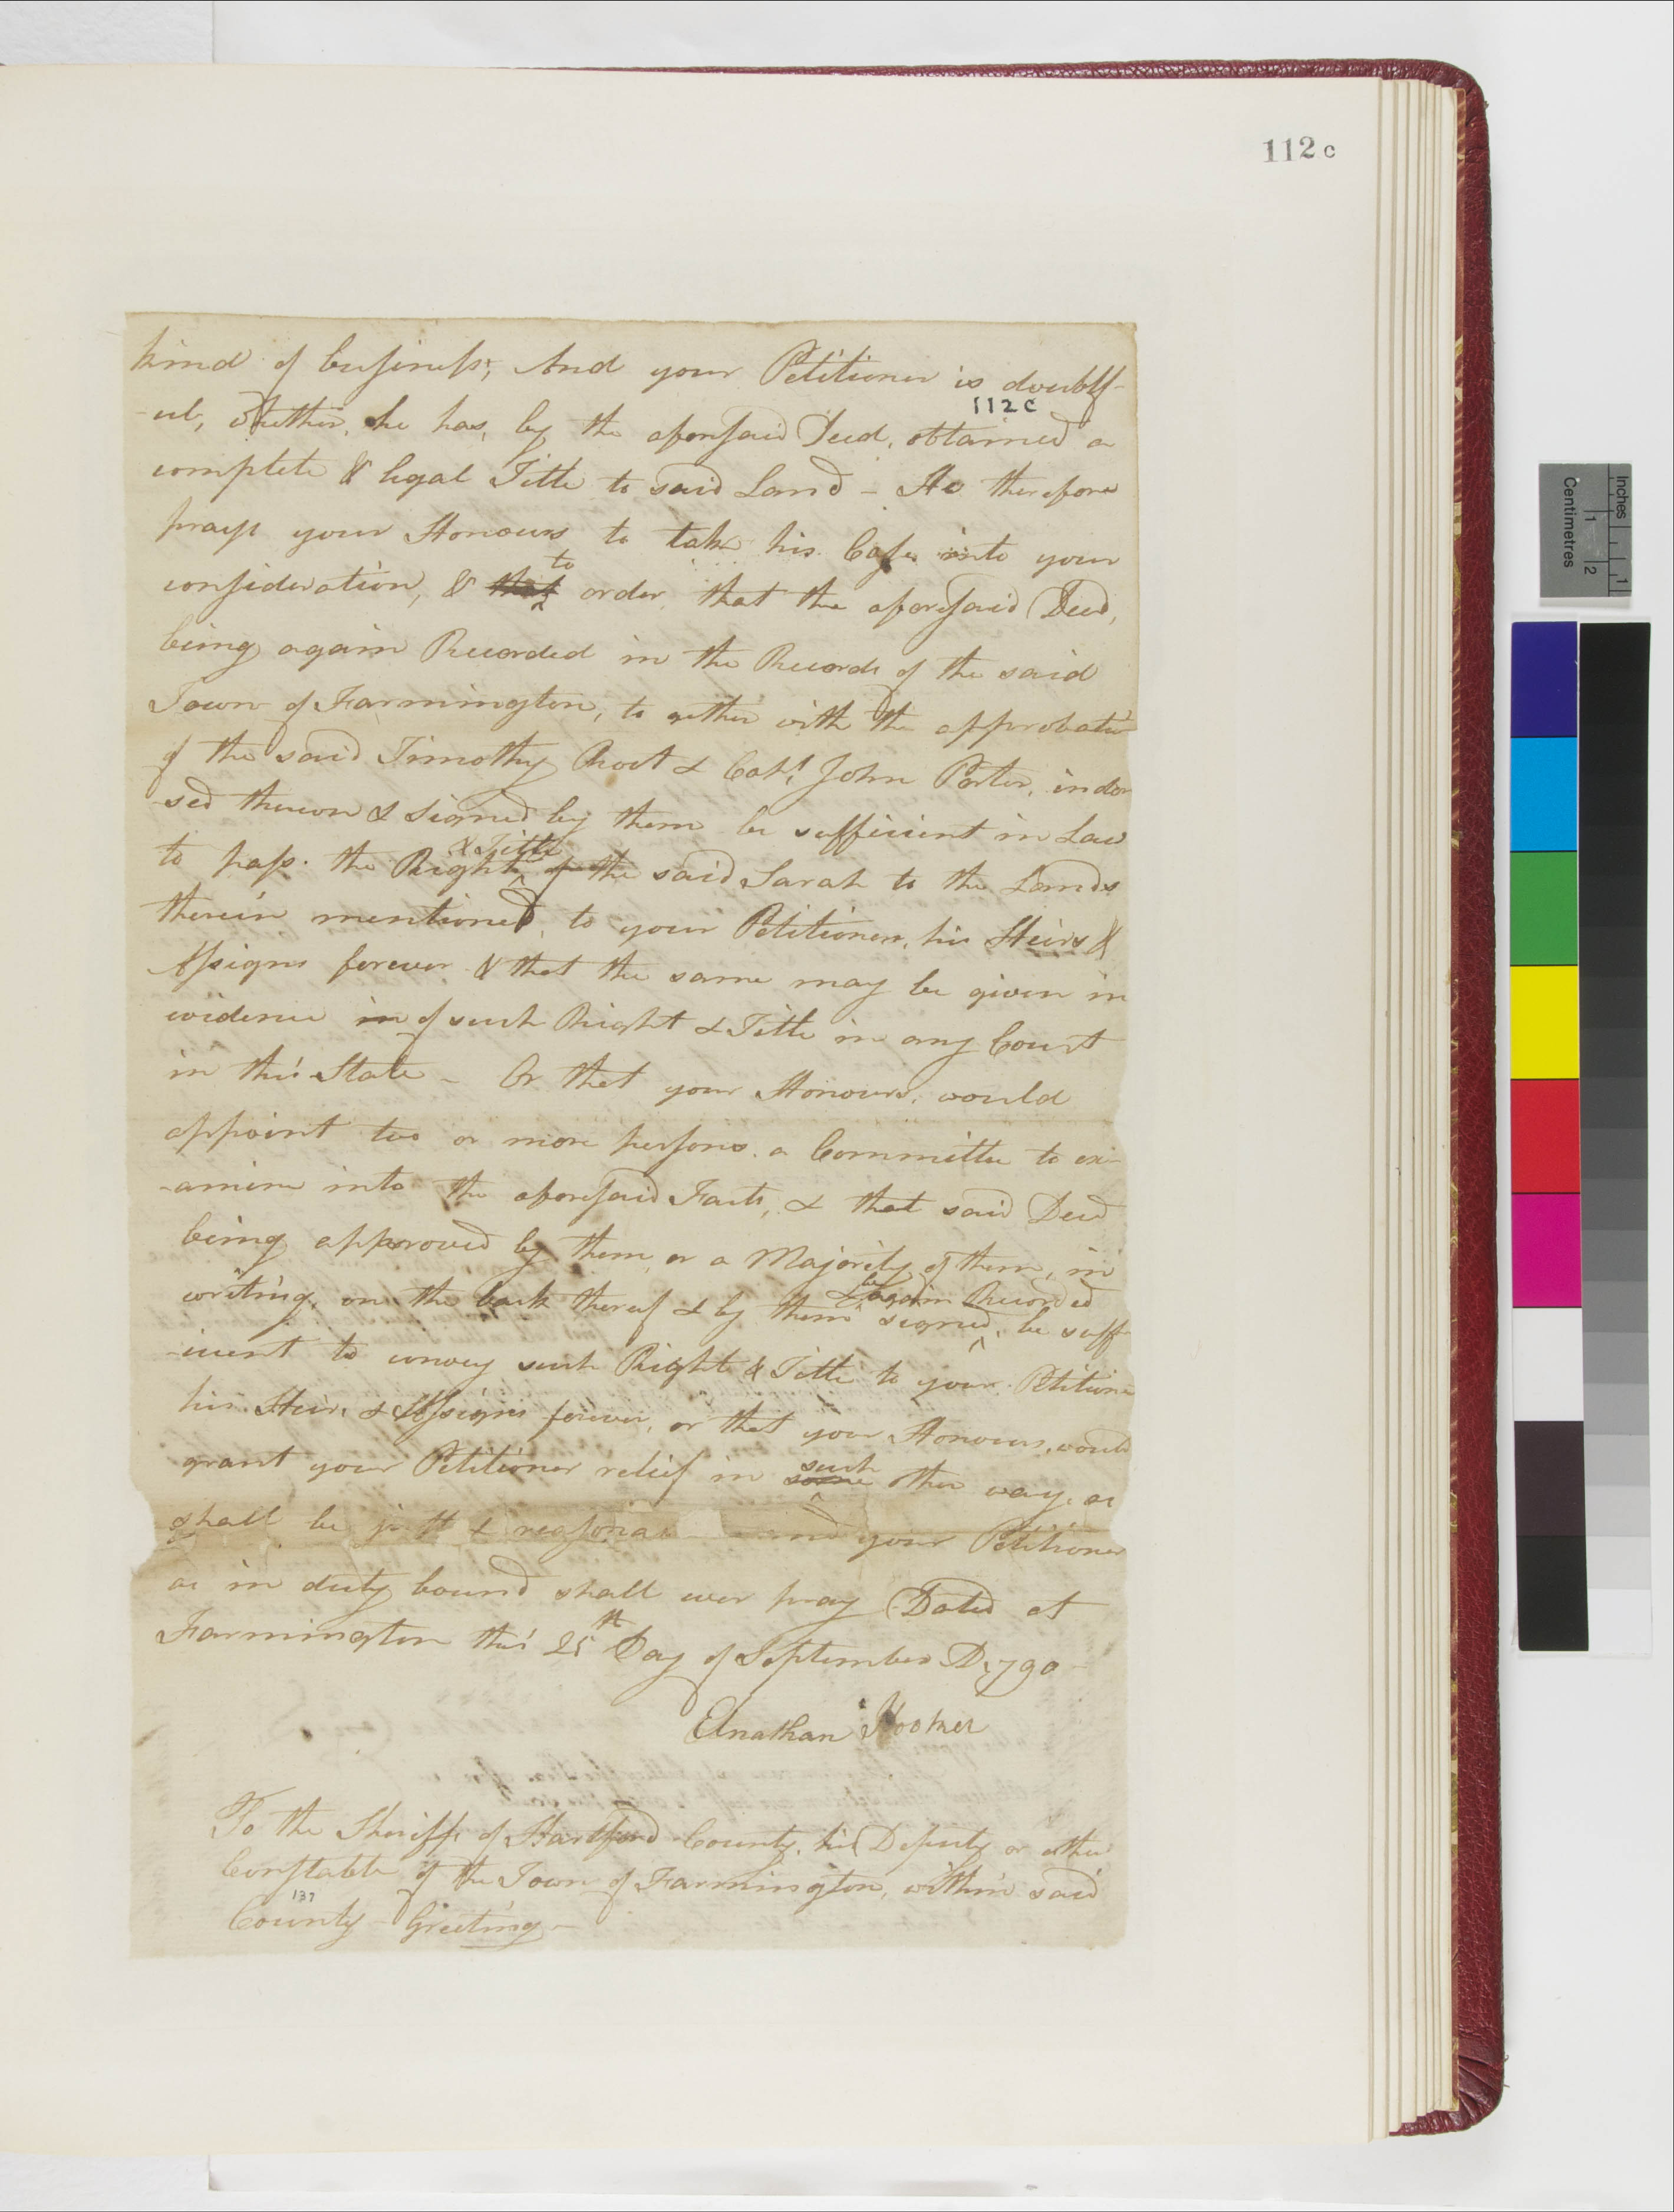 112 c
kind of business; And your Petitioner is doubtf-
112 C
-ul, whether, he has, by the aforesaid Deed, obtained a
complete & legal Title to said Land - He therefore
prays your Honours to take his Case into your
consideration, & that to order that the aforesaid Deed,
being again Recorded in the Records of the said
Town of Farmington, to gether with the approbatn
of the said Timothy Root & Capt. John Porter, indor
sed thereon & Signed by them be sufficient in Law
to pass the Right & Title of the said Sarah to the Lands
therein mentioned, to your Petitioner, his Heirs &
Assigns forever & that the same may be given in
evidence in of such Right & Title in any Court
in this State - Or that your Honours, would
appoint two or more persons a Committee to ex-
-amine into the aforesaid Facts, & that said Deed
being approved by them, or a Majority of them, in
writing, on the back thereof & by them signed, & be again Recorded be suffi
-cient to convey such Right & Title to your Petitione
his Heirs & Assigns forever, or that your Honours, would
grant your Petitioner relief in some such other way, as
shall be just & reasona and your Petitioner
as in duty bound shall ever pray Dated at
Farmington this 25th Day of September D. 1790 -
Elnathan Hooker
To the Sheriff of Hartford County, his Deputy or either
Constable of the Town of Farmington, within said
137
County - Greeting -
Inches
1
Centimetres
1
2